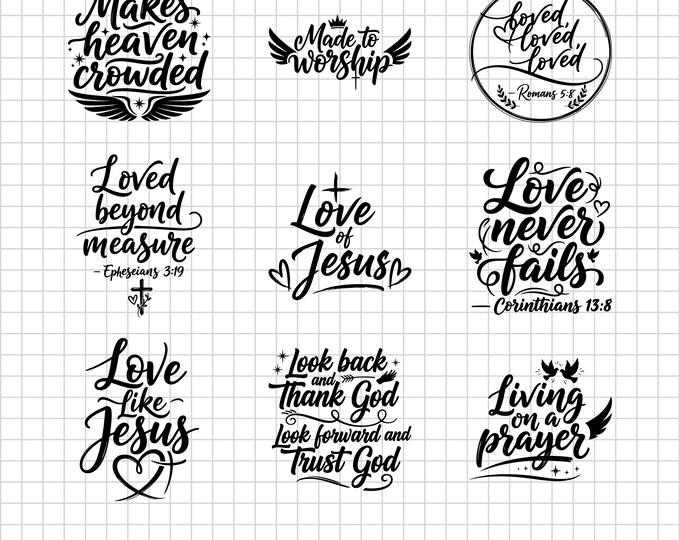 Makes
heaven
crowded
Made to
worship
Loved,
loved,
loved
– Romans 5:8
Loved
beyond
measure
– Epheseians 3:19
Love
of
Jesus
Love
never
fails
— Corinthians 13:8
Love
Like
Jesus
Look back
and
Thank God
Look forward and
Trust God
Living
on a
prayer